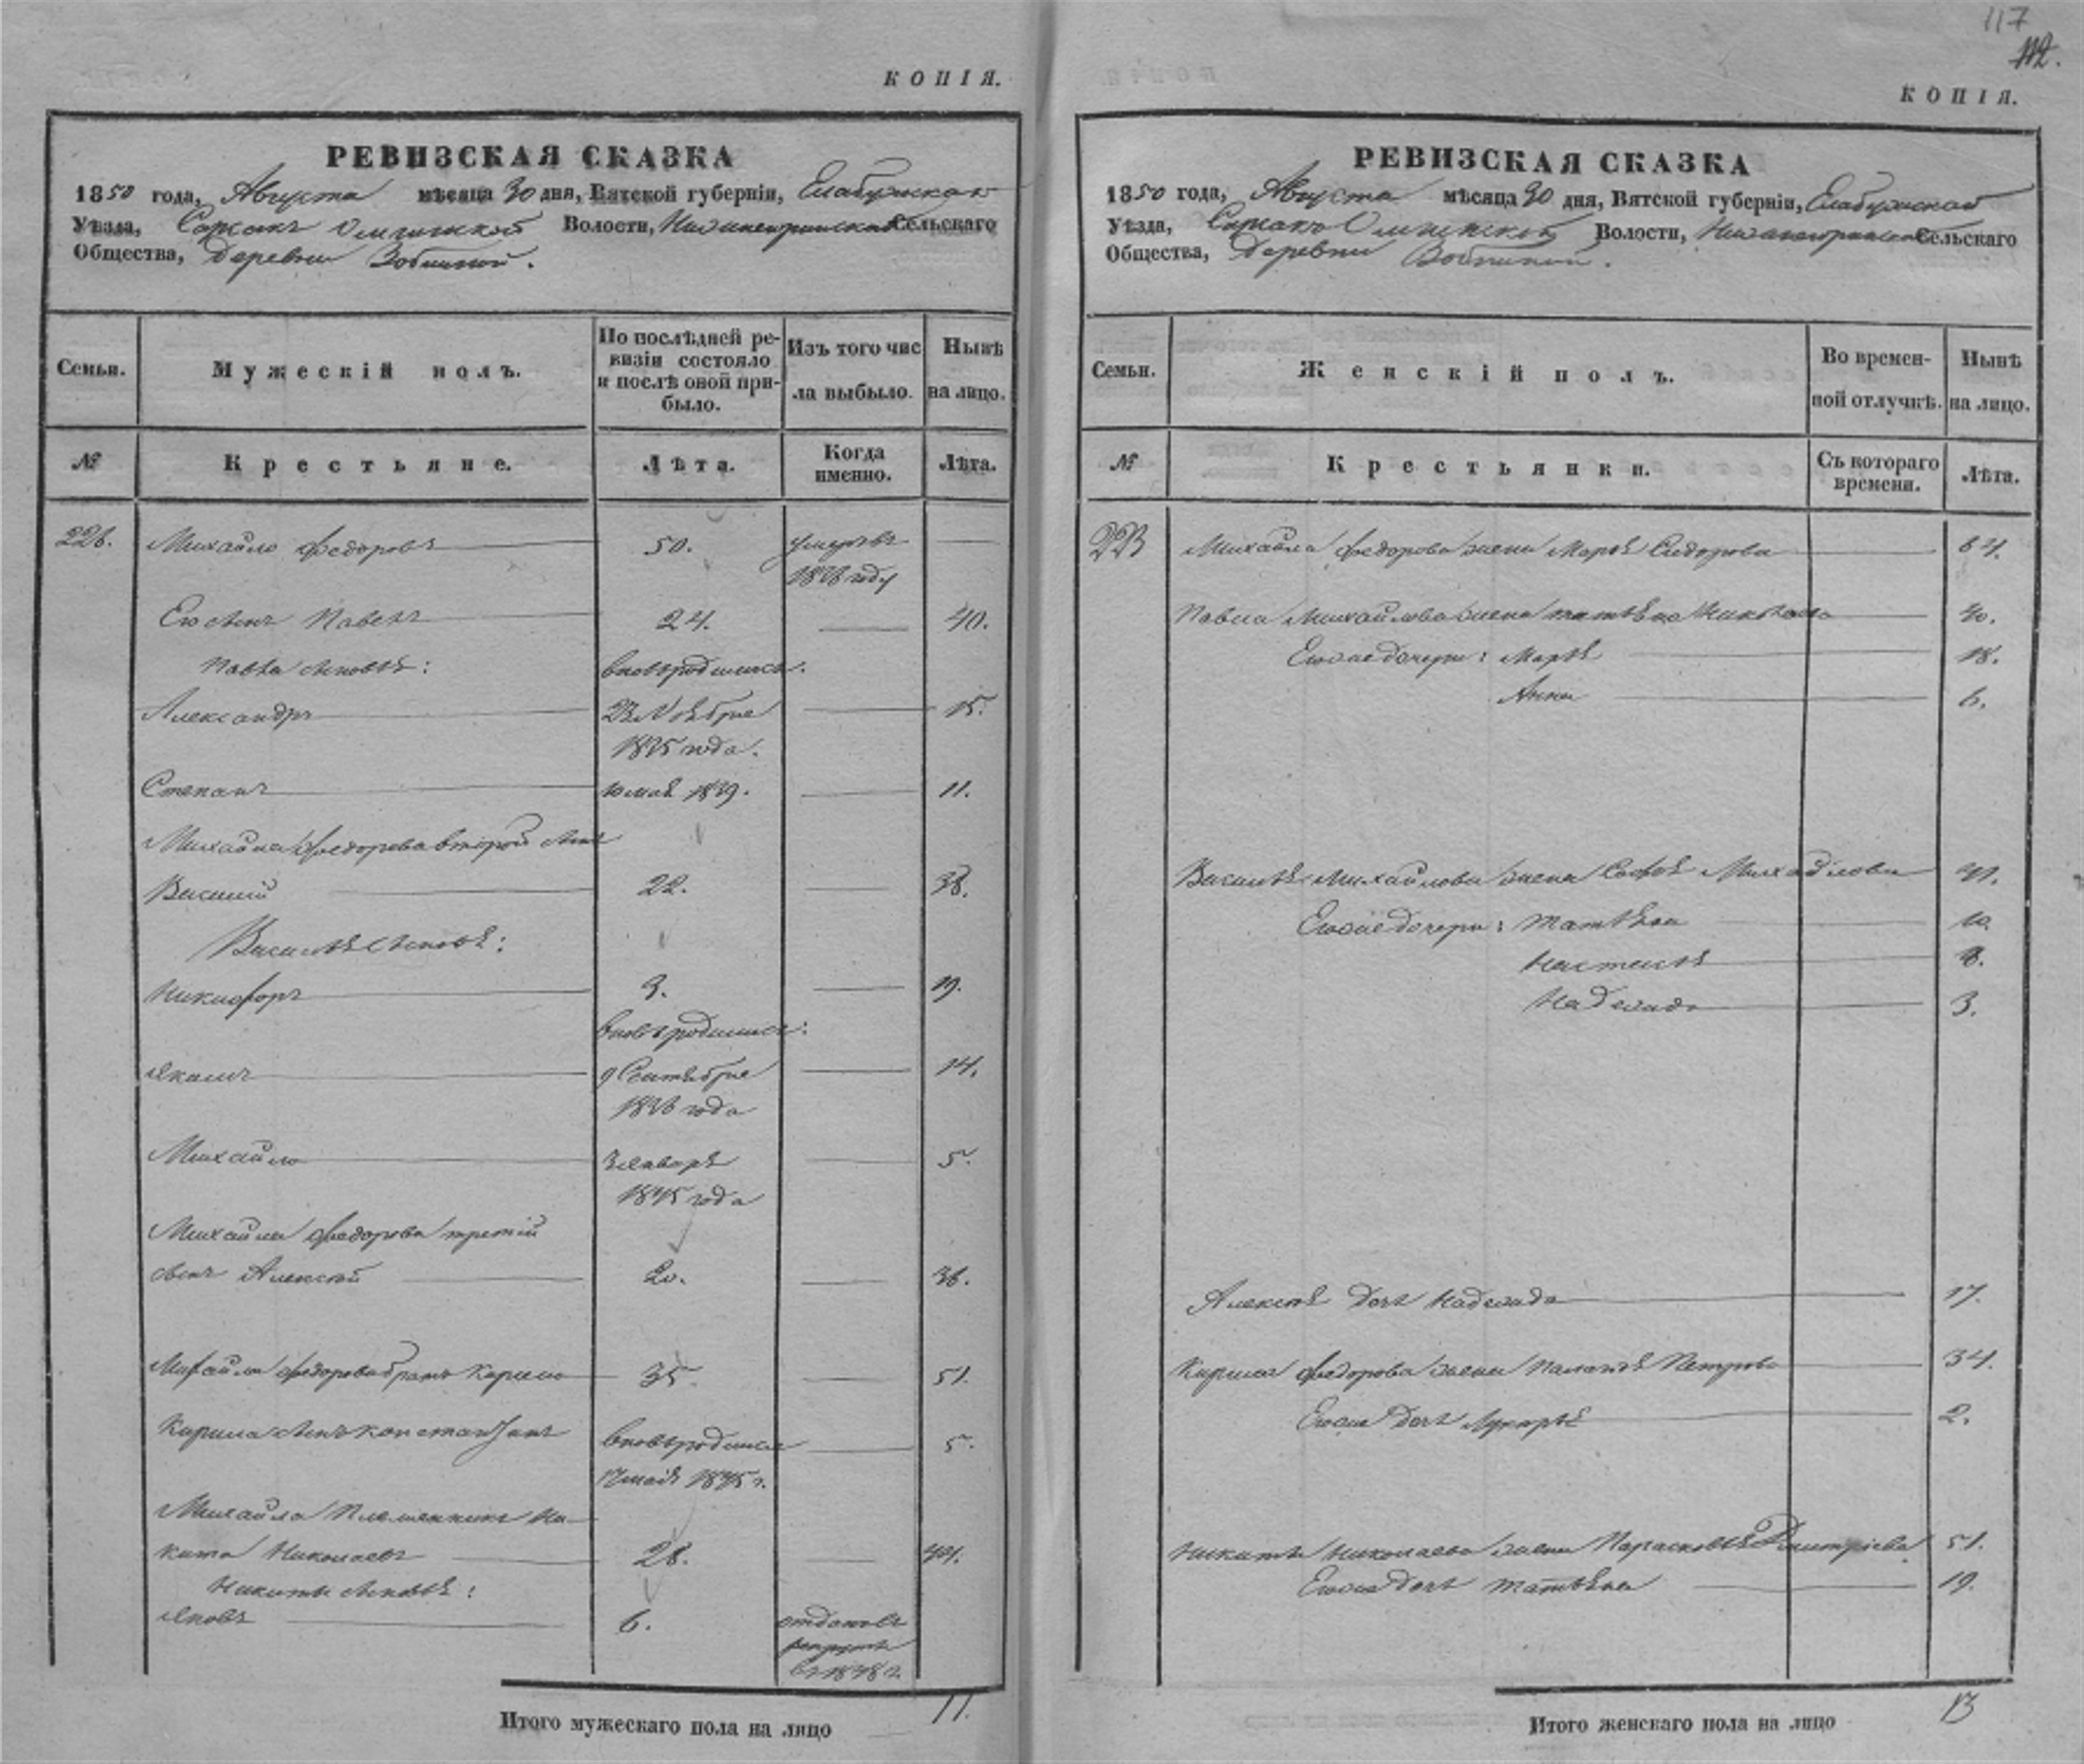 КОПІЯ.
РЕВИЗСКАЯ СКАЗКА
1850 года, Августа мѣсяца 30 дня, Вятской губерніи, Елабужскаго
Уѣзда, Волости, Сельскаго
Общества, Деревни
Семьи.
Мужескій полъ.
По послѣдней ре-
визіи состояло
и послѣ оной при-
было.
Изъ того чис
ла выбыло.
Нынѣ
на лицо.
№
Крестьяне.
Лѣта.
Когда
именно.
Лѣта.
226. Михайло Федоровъ 50. умеръ въ
1836 году
Его сынъ Павелъ 24. 40.
Павла сыновья: вновьродились:
Александръ 23 Ноября 15.
1835 года.
Степанъ 10 мая 1839. 11.
Михайла Федорова второй сынъ
Василий 22. 38.
Василья сыновья:
Никифоръ 3. 19.
вновьродились:
Якимъ 9 Сентября 14.
1836 года
Михайло Января 5.
1845 года
Михайла Федорова третий
сынъ Алексѣй 20. 36.
Михайла Федорова братъ Кирило 35. 51.
Кирила сынъ Константинъ вновьродился 5.
17 мая 1845 г.
Михайла Племянникъ Ни-
кита Николаевъ 28. 44.
Никиты сыновья:
Яковъ 6. отданъ въ
рекруты
въ 1848 г.
Итого мужескаго пола на лицо 11.
117
112.
КОПІЯ.
РЕВИЗСКАЯ СКАЗКА
1850 года, Августа мѣсяца 30 дня, Вятской губерніи, Елабужской
Уѣзда, Волости, Сельскаго
Общества, Деревни
Семьи.
Женскій полъ.
Во времен-
ной отлучкѣ.
Нынѣ
на лицо.
№
Крестьянки.
Съ котораго
времени.
Лѣта.
Михайла Федорова жена Марья Сидорова 64.
Павла Михайлова жена Татьяна Николаева 40.
Его же дочери: Марья 18.
Анна 6.
Василья Михайлова жена Софья Михайлова 41.
Его же дочери: Татьяна 10.
Настасья 8.
Надежда 3.
Алексѣя дочь Надежда 17.
Кирила Федорова жена Пелагья Петрова 34.
Его же дочь Лукерья 2.
Никиты Николаева жена Парасковья Дмитріева 51.
Его же дочь Татьяна 19.
Итого женскаго пола на лицо 13